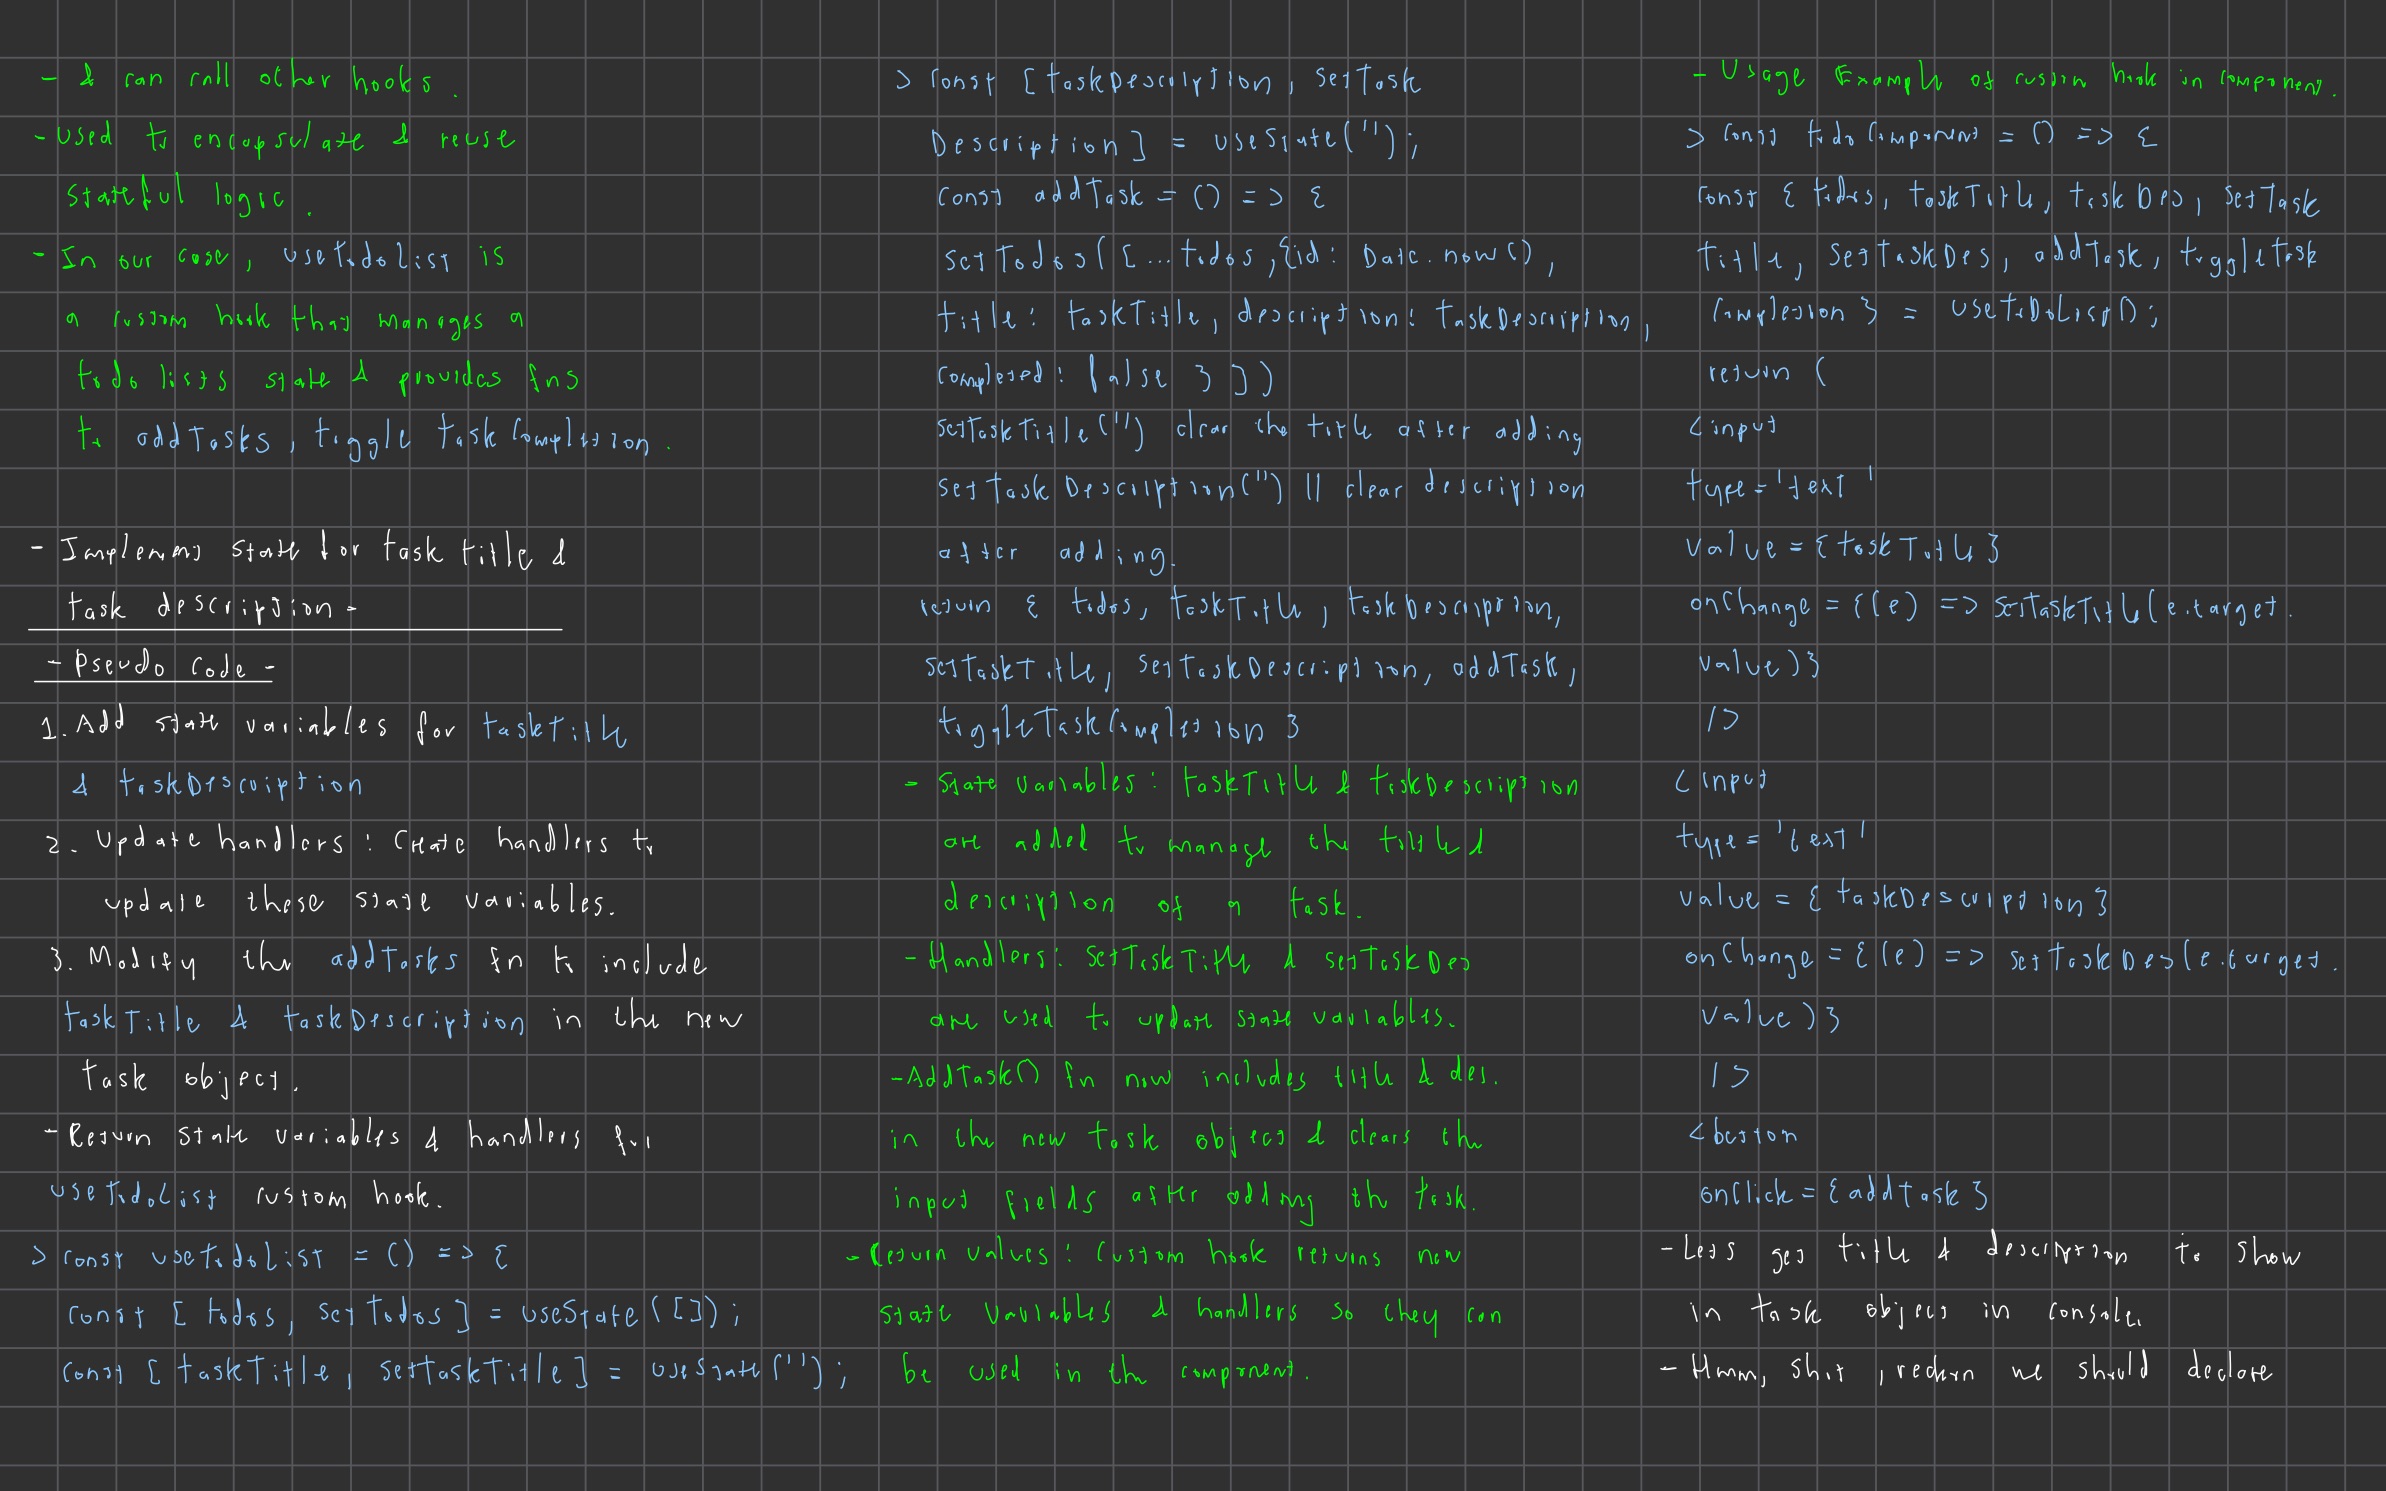 - & can call other hooks.
- Used to encapsulate & reuse
stateful logic.
- In our case, useTodoList is
a custom hook that manages a
todo lists state & provides fns
to addTasks, toggle taskCompletion.
- Implement state for task title &
task description -
- Pseudo Code -
1. Add state variables for taskTitle
& taskDescription
2. Update handlers : Create handlers to
update these state variables.
3. Modify the addTasks fn to include
taskTitle & taskDescription in the new
task object.
- Return state variables & handlers for
useTodoList custom hook.
> const useTodoList = () => {
const [ todos, setTodos ] = useState([]);
const [ taskTitle, setTaskTitle ] = useState('');
> const [taskDescription, setTask
Description] = useState('');
const addTask = () => {
setTodos([...todos, {id: Date.now(),
title: taskTitle, description: taskDescription,
completed: false }])
setTaskTitle('') clear the title after adding
setTaskDescription('') // clear description
after adding.
return { todos, taskTitle, taskDescription,
setTaskTitle, setTaskDescription, addTask,
toggleTaskCompletion }
- State variables : taskTitle & taskDescription
are added to manage the title &
description of a task.
- Handlers: SetTaskTitle & setTaskDes
are used to update state variables.
- AddTask() fn now includes title & des.
in the new task object & clears the
input fields after adding the task.
- Return values : Custom hook returns new
state variables & handlers so they can
be used in the component.
- Usage Example of custom hook in component.
> const todoComponent = () => {
const { todos, taskTitle, taskDes, setTask
Title, setTaskDes, addTask, toggleTask
Completion } = useToDoList();
return (
<input
type='text'
value={taskTitle}
onChange={(e) => setTaskTitle(e.target.
value)}
/>
<input
type='text'
value={taskDescription}
onChange={(e) => setTaskDes(e.target.
value)}
/>
<button
onClick={addTask}
- Lets get title & description to show
in task object in console.
- Hmm, shit, reckon we should declare